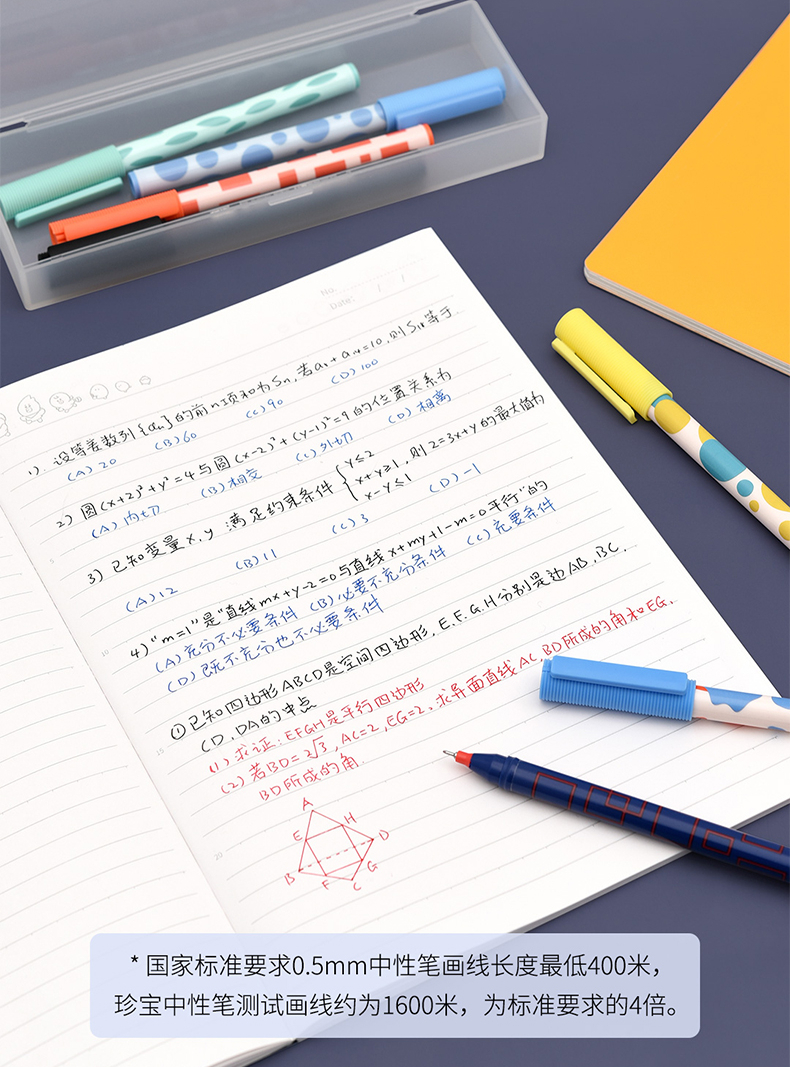 No.
Date: / /
1). 设等差数列{an}的前n项和为Sn, 若 + =10, 则 等于
(A) 20 (B) 60 (C) 90 (D) 100
2) 圆(x+2)²+y²=4与圆(x-2)²+(y-1)²=9的位置关系为
(A) 内切 (B) 相交 (C) 外切 (D) 相离
3) 已知变量x,y 满足约束条件 { y≤2 x+y≥1, 则z=3x+y的最大值为
x-y≤1
(A) 12 (B) 11 (C) 3 (D) -1
4) "m=1"是"直线mx+y-2=0与直线x+my+1-m=0平行"的
(A) 充分不必要条件 (B) 必要不充分条件 (C) 充要条件
(D) 既不充分也不必要条件
①已知四边形ABCD是空间四边形, E.F.G.H分别是边AB,BC,
CD,DA的中点
(1) 求证: EFGH是平行四边形
(2) 若BD=2√3, AC=2, EG=2, 求异面直线AC,BD所成的角和EG,
BD所成的角.
A
E H
D
B G
F C
5
10
15
20
* 国家标准要求0.5mm中性笔画线长度最低400米，
珍宝中性笔测试画线约为1600米，为标准要求的4倍。